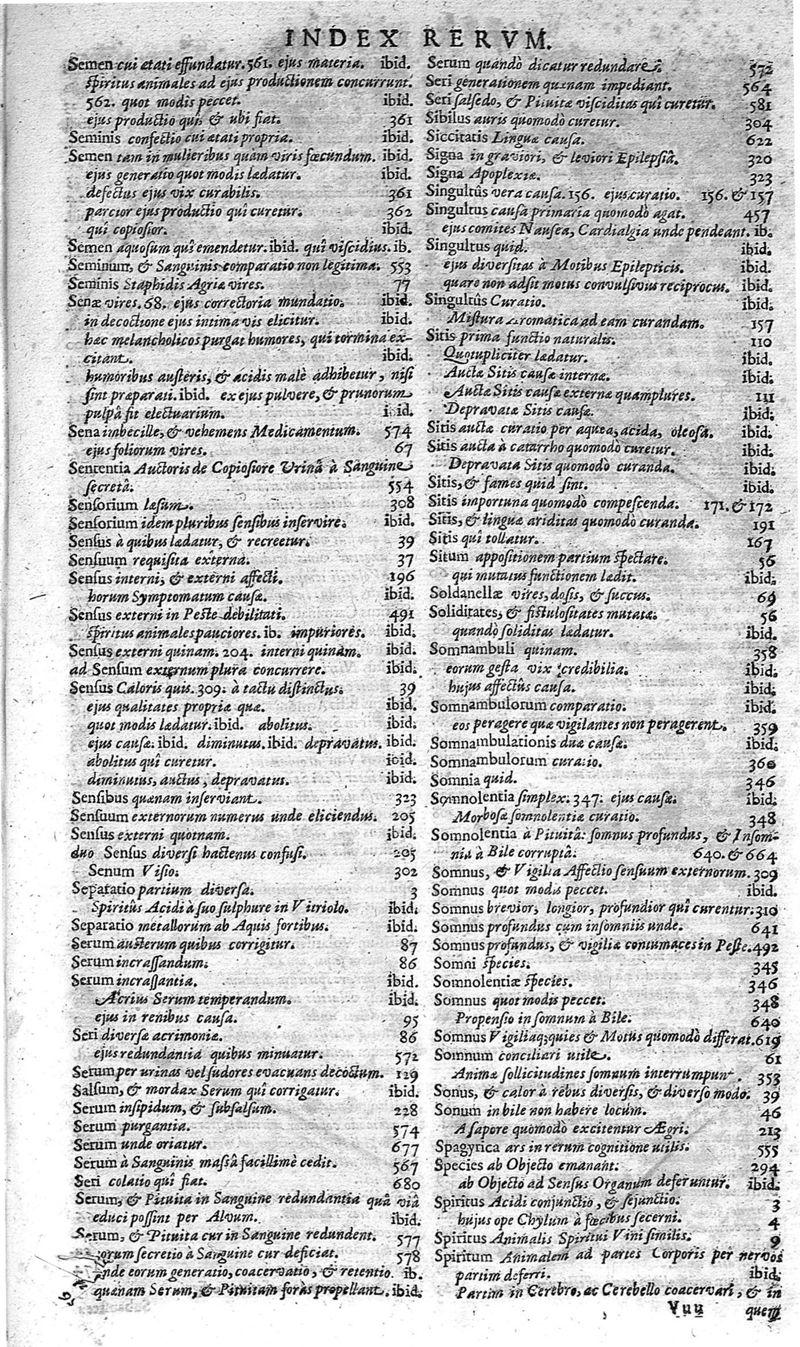 INDEX RERVM.
Semen cui ætati effundatur. 561. ejus materia. ibid.
spiritus animales ad ejus productionem concurrunt.
562. quot modis peccet. ibid.
ejus productio quis & ubi fiat. 361
Seminis confectio cui ætati propria. ibid.
Semen tam in mulieribus quàm viris fœcundum. ibid.
ejus generatio quot modis lædatur. ibid.
defectus ejus vix curabilis. 361
parcior ejus productio qui curetur. 362
qui copiosior. ibid.
Semen aquosum quî emendetur. ibid. quî viscidius. ib.
Seminum, & Sanguinis comparatio non legitima. 553
Seminis Staphidis Agriæ vires. 77
Senæ vires. 68. ejus correctoria mundatio. ibid.
in decoctione ejus intima vis elicitur. ibid.
hæc melancholicos purgat humores, qui tormina ex-
citant. ibid.
humoribus austeris, & acidis malè adhibetur, nisi
sint præparati. ibid. ex ejus pulvere, & prunorum
pulpâ fit electuarium. ibid.
Sena imbecille, & vehemens Medicamentum. 574
ejus foliorum vires. 67
Sententia Auctoris de Copiosiore Urinâ à Sanguine
secretâ. 554
Sensorium læsum. 308
Sensorium idem pluribus sensibus inservire. ibid.
Sensus à quibus lædatur, & recreetur. 39
Sensuum requisita externa. 37
Sensus interni, & externi affecti. 196
horum Symptomatum causæ. ibid.
Sensus externi in Peste debilitati. 491
spiritus animales pauciores. ib. impuriores. ibid.
Sensus externi quinam. 204. interni quinam. ibid.
ad Sensum externum plura concurrere. ibid.
Sensus Caloris quis. 309. à tactu distinctus. 39
ejus qualitates propriæ quæ. ibid.
quot modis lædatur. ibid. abolitus. ibid.
ejus causæ. ibid. diminutus. ibid. depravatus. ibid.
abolitus quî curetur. ibid.
diminutus, auctus, depravatus. ibid.
Sensibus quænam inserviant. 323
Sensuum externorum numerus unde eliciendus. 205
Sensus externi quotnam. ibid.
duo Sensus diversi hactenus confusi. 205
Senum Visio. 302
Separatio partium diversa. 3
Spiritûs Acidi à suo sulphure in Vitriolo. ibid.
Separatio metallorum ab Aquis fortibus. ibid.
Serum austerum quibus corrigitur. 87
Serum incrassandum. 86
Serum incrassantia. ibid.
Acrius Serum temperandum. ibid.
ejus in renibus causa. 95
Seri diversæ acrimoniæ. 86
ejus redundantia quibus minuatur. 572
Serum per urinas vel sudores evacuans decoctum. 129
Salsum, & mordax Serum qui corrigatur. ibid.
Serum insipidum, & subsalsum. 228
Serum purgantia. 574
Serum unde oriatur. 677
Serum à Sanguinis massâ facillimè cedit. 567
Seri colatio qui fiat. 680
Serum, & Pituita in Sanguine redundantia quâ viâ
educi possint per Alvum. ibid.
Serum, & Pituita cur in Sanguine redundent. 577
orum secretio à Sanguine cur deficiat. 578
unde eorum generatio, coacervatio, & retentio. ib.
quænam Serum, & Pituitam foràs propellant. ibid.
Serum quandò dicatur redundare. 572
Seri generationem quænam impediant. 564
Seri salsedo, & Pituitæ visciditas qui curetur. 581
Sibilus auris quomodò curetur. 304
Siccitatis Linguæ causa. 622
Signa in graviori, & leviori Epilepsiâ. 320
Signa Apoplexiæ. 323
Singultûs vera causa. 156. ejus curatio. 156. & 157
Singultus causa primaria quomodò agat. 457
ejus comites Nausea, Cardialgia unde pendeant. ib.
Singultus quid. ibid.
ejus diversitas à Motibus Epilepticis. ibid.
quare non adsit motus convulsivius reciprocus. ibid.
Singultûs Curatio. ibid.
Mistura Aromatica ad eam curandam. 157
Sitis prima functio naturalis. 110
Quotupliciter lædatur. ibid.
Auctæ Sitis causæ internæ. ibid.
Auctæ Sitis causæ externæ quamplures. 111
Depravatæ Sitis causæ. ibid.
Sitis auctæ curatio per aquea, acida, oleosa. ibid.
Sitis aucta à catarrho quomodò curetur. ibid.
Depravata Sitis quomodò curanda. ibid.
Sitis, & fames quid sint. ibid.
Sitis importuna quomodò compescenda. 171. & 172
Sitis, & linguæ ariditas quomodò curanda. 191
Sitis qui tollatur. 167
Situm appositionem partium spectare. 56
qui mutatus functionem lædit. ibid.
Soldanellæ vires, dosis, & succus. 69
Soliditates, & fistulositates mutatæ. 56
quandò soliditas lædatur. ibid.
Somnambuli quinam. 358
eorum gesta vix credibilia. ibid.
hujus affectûs causa. ibid.
Somnambulorum comparatio. ibid.
eos peragere quæ vigilantes non peragerent. 359
Somnambulationis duæ causæ. ibid.
Somnambulorum curatio. 360
Somnia quid. 346
Somnolentia simplex. 347. ejus causæ. ibid.
Morbosæ somnolentiæ curatio. 348
Somnolentia à Pituitâ: somnus profundus, & Insom-
nia à Bile corruptâ. 640. & 664
Somnus, & Vigilia Affectio sensuum externorum. 309
Somnus quot modis peccet. ibid.
Somnus brevior, longior, profundior qui curentur. 310
Somnus profundus cum insomniis unde. 641
Somnus profundus, & vigiliæ contumaces in Peste. 492
Somni species. 345
Somnolentiæ species. 346
Somnus quot modis peccet. 348
Propensio in somnum à Bile. 640
Somnus Vigiliaq; quies & Motus quomodò differat. 619
Somnum conciliari utile. 61
Animæ sollicitudines somnum interrumpunt. 353
Sonus, & calor à rebus diversis, & diverso modo. 39
Sonum in bile non habere locum. 46
A sapore quomodò excitentur Ægri. 213
Spagyrica ars in rerum cognitione utilis. 555
Species ab Objecto emanant. 294
ab Objecto ad Sensus Organum deferuntur. ibid.
Spiritus Acidi conjunctio, & sejunctio. 3
hujus ope Chylum à fæcibus secerni. 4
Spiritus Animalis Spiritui Vini similis. 9
Spiritum Animalem ad partes Corporis per nervos
partim deferri. ibid.
Partim in Cerebro, ac Cerebello coacervari, & in
Vuu quem